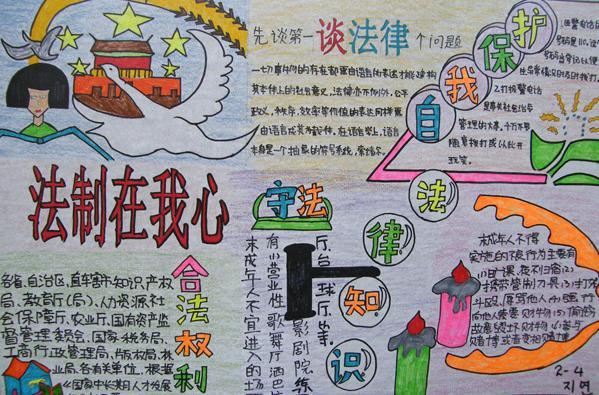 先谈第一谈法律个问题
一切事物的存在都要由语言的表述才能建构
其本体上的社会意义,法律亦不例外,公平
正义,秩序,效率等价值的表达同样要
由语言成其为载体,在语言学上,语言
本身是一个抽象的符号系统,索绪尔
自我保护
2.打报警电话
是事关社会治安
管理的大事,千万不要
随意拨打或以此开
玩笑。
法制在我心
守法
法律知识
合法权利
各省、自治区、直辖市知识产权
局、教育厅(局)、人力资源社
会保障厅、农业厅、国有资产监
督管理委员会、国家税务局、
工商行政管理局、版权局、林
业局、各有关单位,根据
《国家中长期人才发展
未成年人不宜进入的场
有:营业性歌舞厅酒吧
厅、台球厅等。
影剧院
未成年人不得
实施的不良行为主要有
(1)旷课、夜不归宿(2)
携带管制刀具(3)打架
斗殴、辱骂他人(4)强行
向他人索要财物(5)偷窃
故意毁坏财物(6)参与
赌博或者变相赌博
2-4